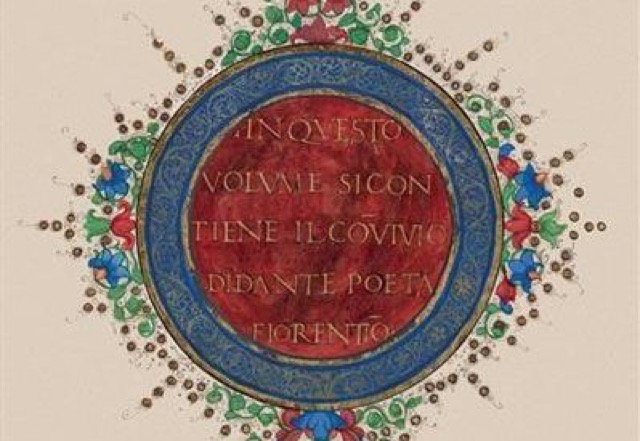 INQVESTO
VOLVME SICON
TIENE IL CŌVIVIO
DIDANTE POETA
FIORENTĪO